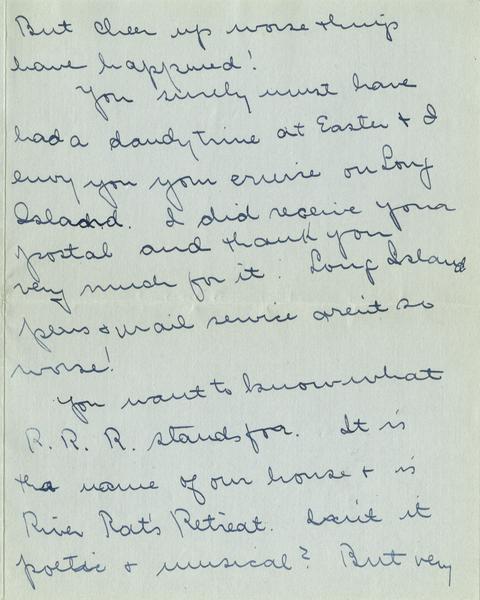 But cheer up worse things
have happened!
You surely must have
had a dandy time at Easter & I
envy you your cruise on Long
Island. I did receive your
postal and thank you
very much for it. Long Island
pens & mail service aren't so
worse!
You want to know what
R. R. R. stands for. It is
the name of our house & is
River Rat's Retreat. Isn't it
poetic & musical? But very